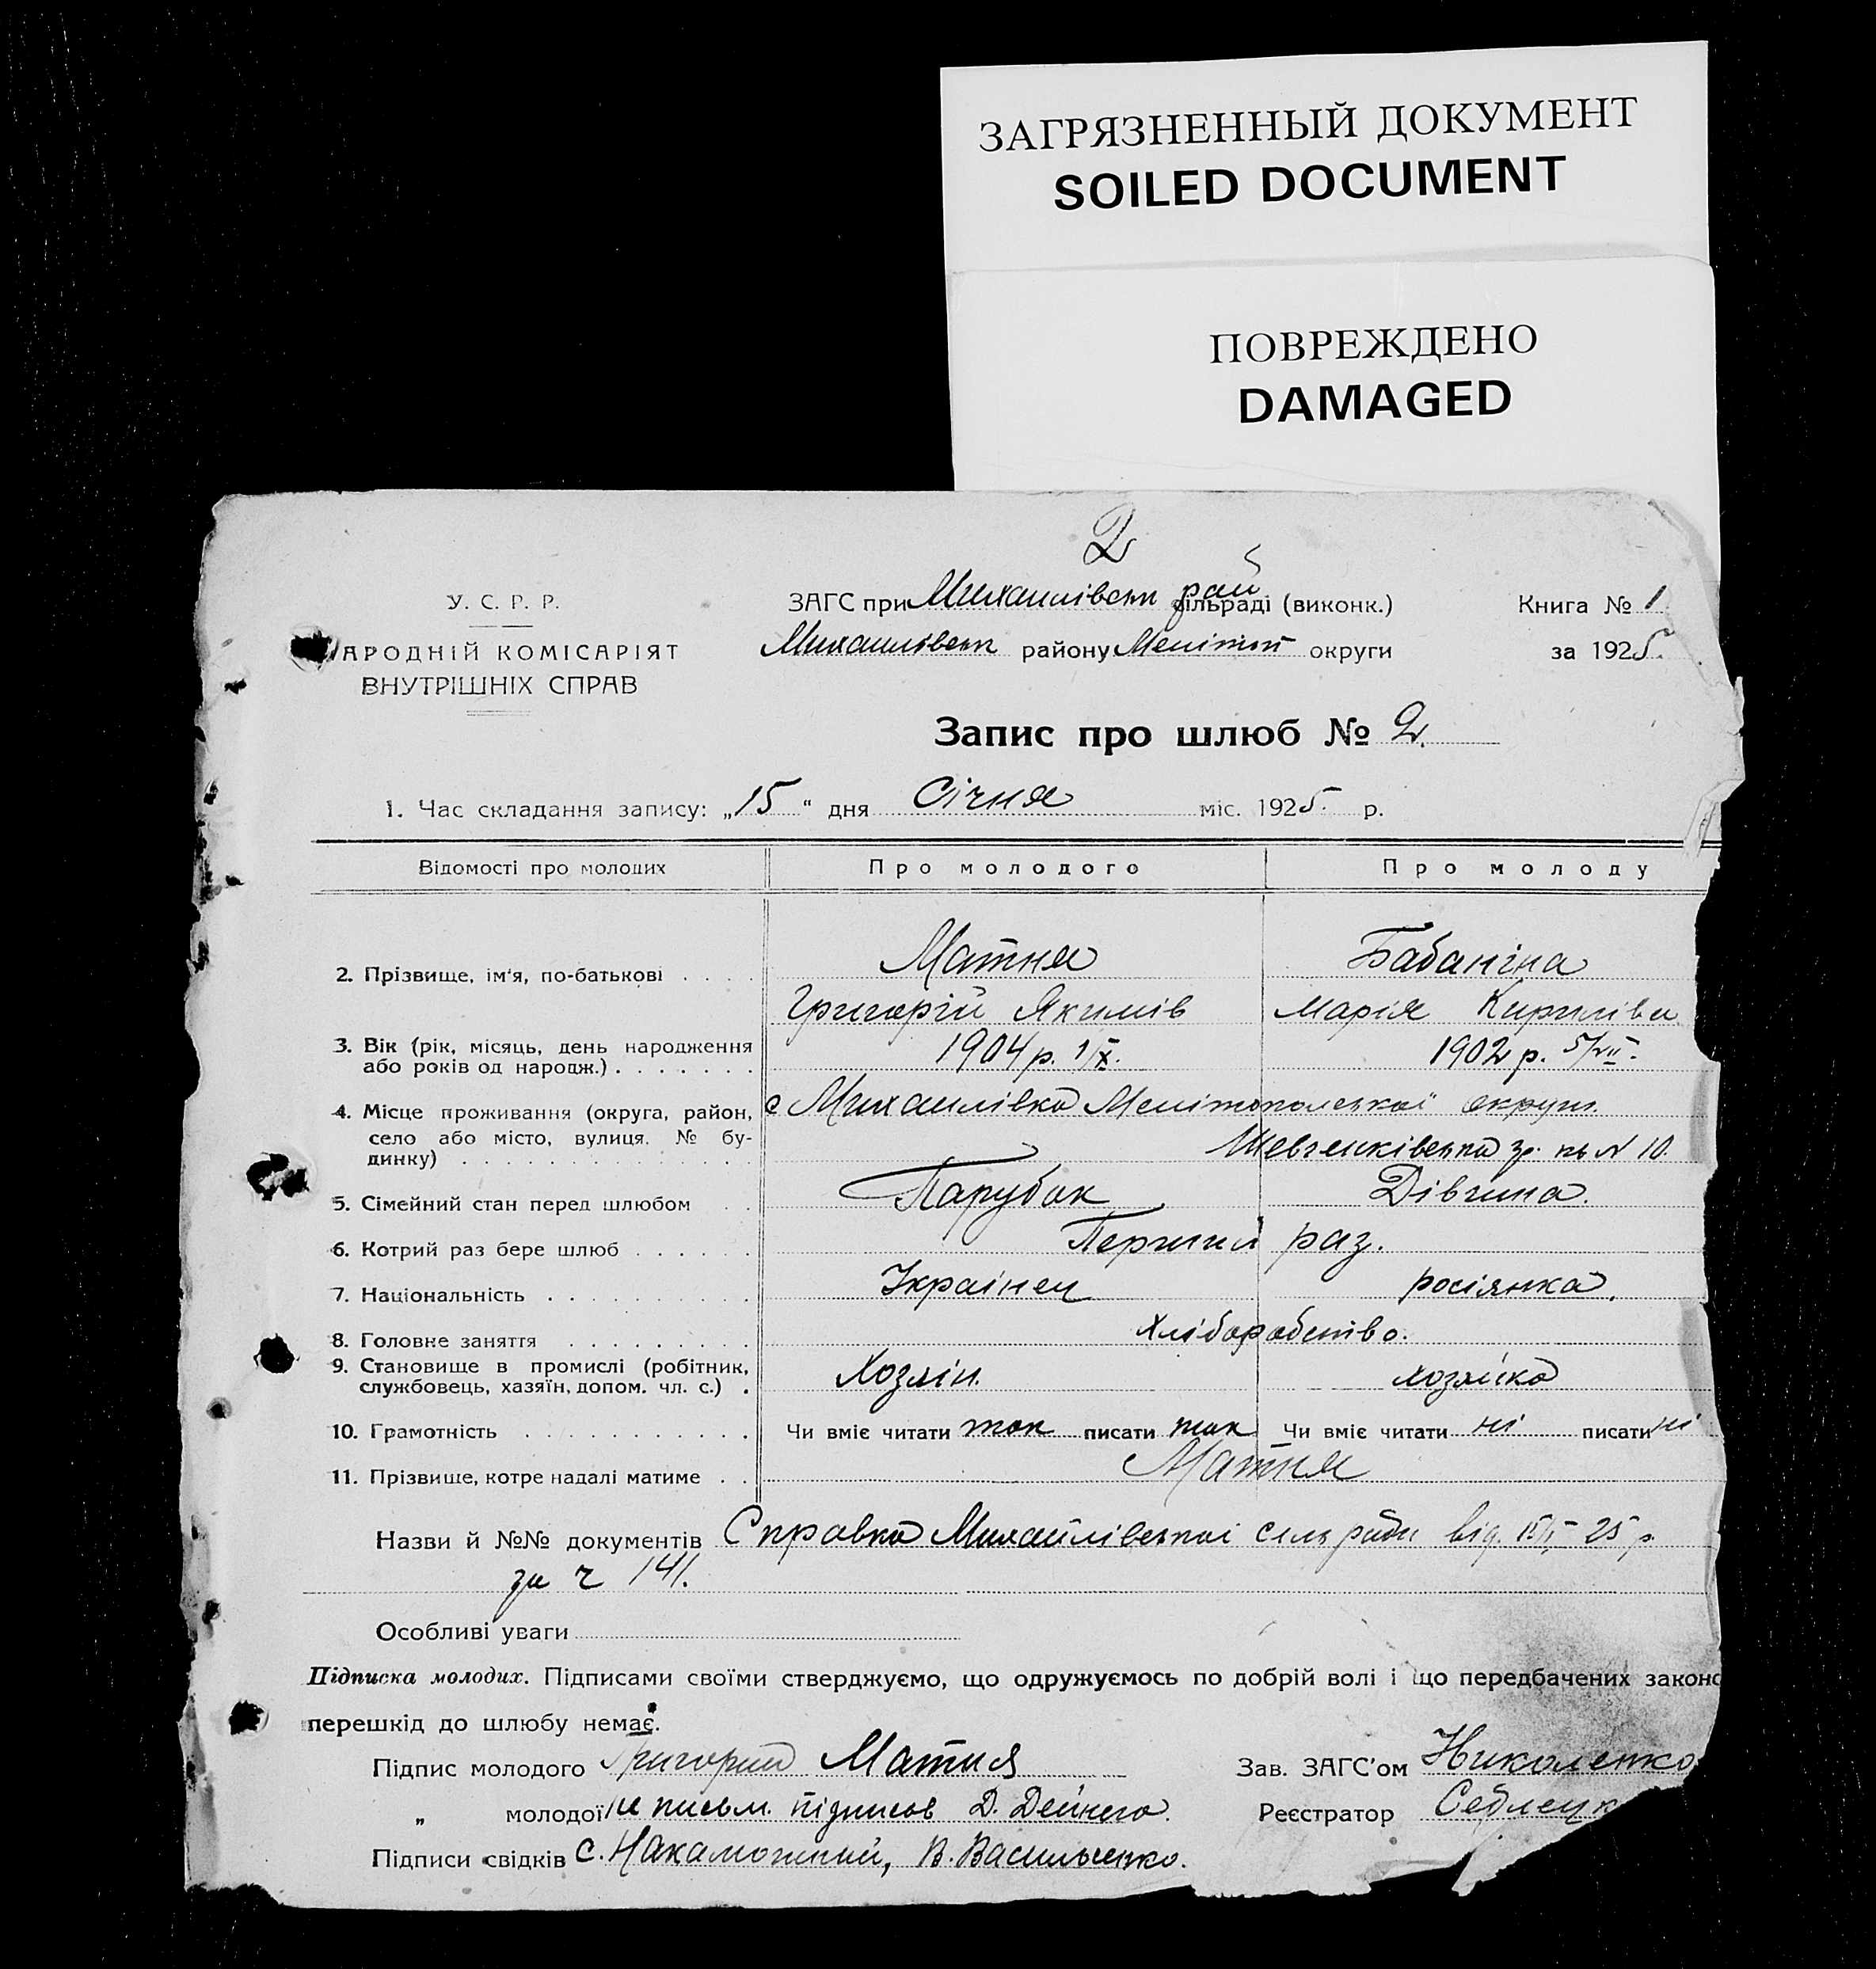 ЗАГРЯЗНЕННЫЙ ДОКУМЕНТ
SOILED DOCUMENT
ПОВРЕЖДЕНО
DAMAGED
2
У. С. Р. Р.
АРОДНІЙ КОМІСАРІЯТ
ВНУТРІШНІХ СПРАВ
ЗАГС при Михайлівськ рай сільраді (виконк.)
Михайлівськ району Мелітоп округи
Книга № 1
за 1925.
Запис про шлюб № 2.
1. Час складання запису: „15“ дня Січня міс. 1925 р.
Відомості про молодих Про молодого Про молоду
2. Прізвище, ім'я, по-батькові . . . . Матня Бабаніна
Григорій Якимів Марія Кирилівн
3. Вік (рік, місяць, день народження або років од народж.) . . . . . . . 1904 р. 1/X. 1902 р. 5/VII.
4. Місце проживання (округа, район, село або місто, вулиця. № будинку) . . . . . . . с Михайлівка Мелітопольської округи
Шевченківська № 10.
5. Сімейний стан перед шлюбом . . Парубок Дівчина.
6. Котрий раз бере шлюб . . . . . . Перший раз.
7. Національність . . . . . . . . . . Українец росіянка.
8. Головне заняття . . . . . . . . . Хліборобство.
9. Становище в промислі (робітник, службовець, хазяїн, допом. чл. с.) . Хозяїн. хозяйка
10. Грамотність . . . . . . . . . . . Чи вміє читати так писати так Чи вміє читати ні писати ні
11. Прізвище, котре надалі матиме . . Матня
Назви й №№ документів Справка Михайлівської сельради від. 15/I-25 р.
за ч 141.
Особливі уваги
Підписка молодих. Підписами своїми стверджуємо, що одружуємось по добрій волі і що передбачених законо
перешкід до шлюбу немає.
Підпис молодого Григорий Матня Зав. ЗАГС'ом Николенко
„ молодої письм. підписав Д. Дейнега. Реєстратор Седлецк
Підписи свідків С. В. Васильченко.